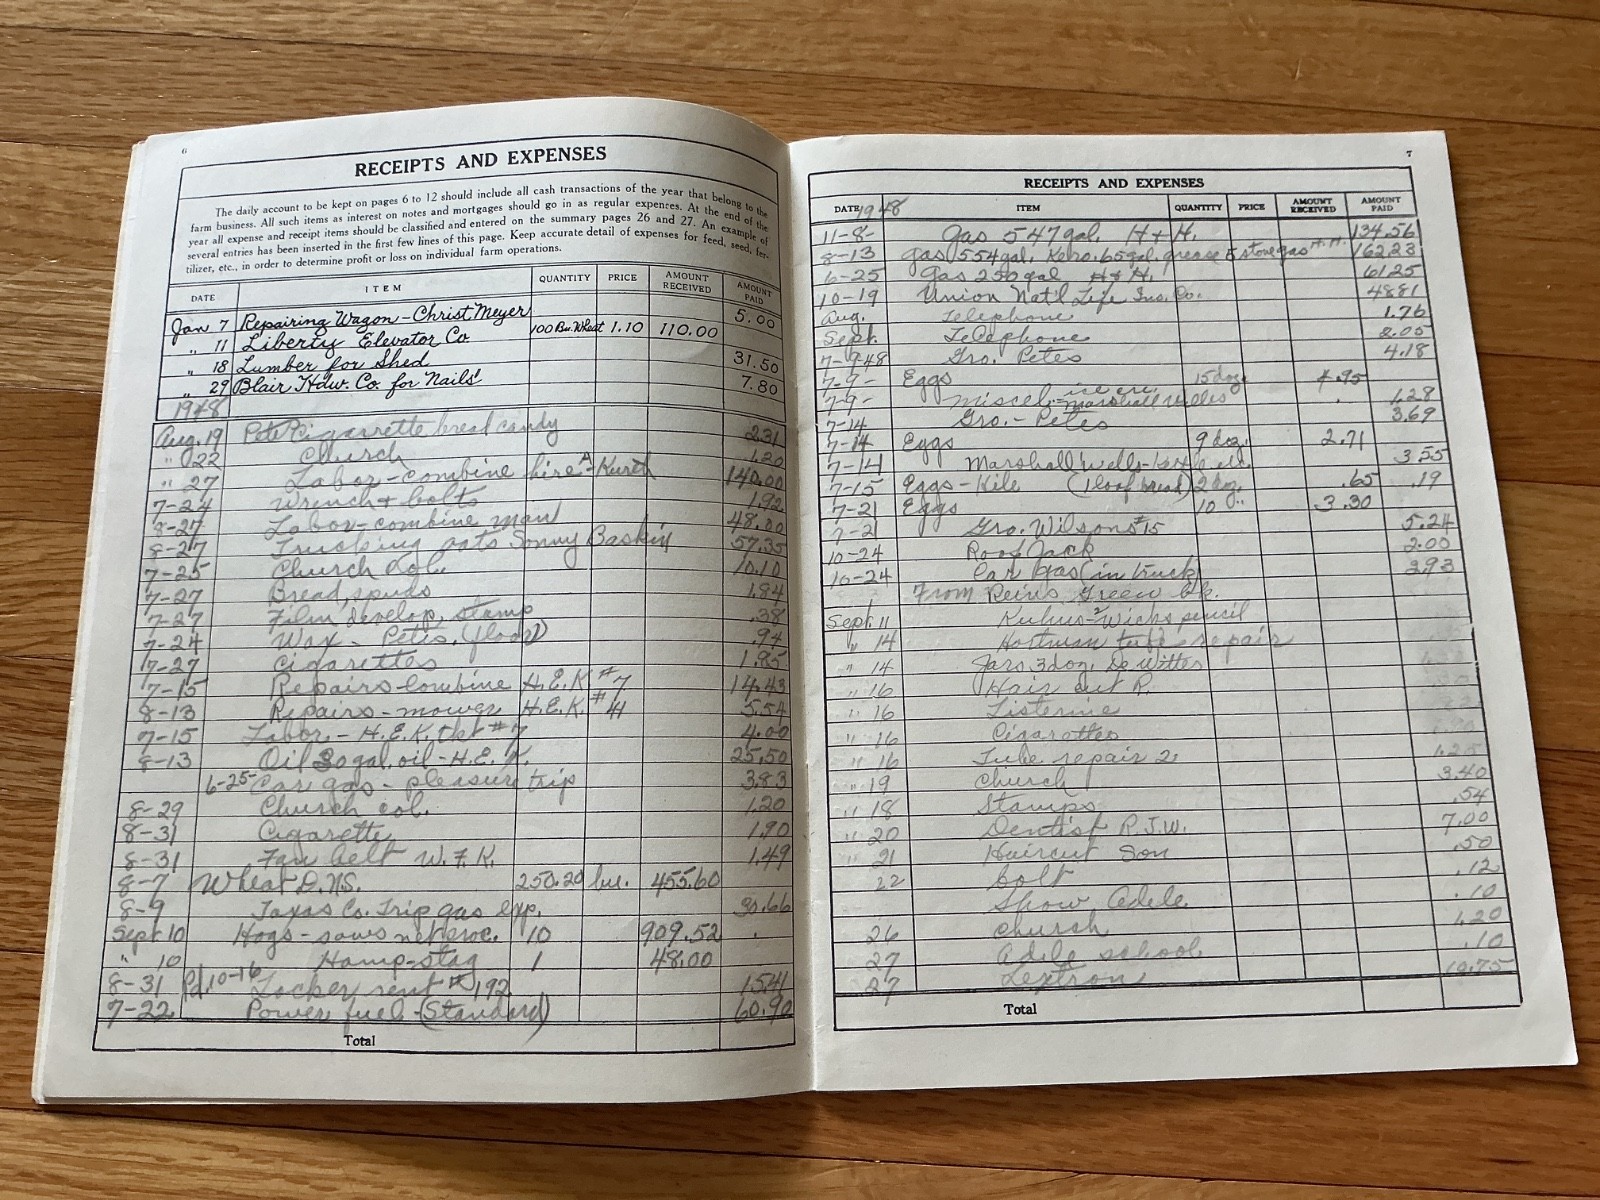 6
RECEIPTS AND EXPENSES
The daily account to be kept on pages 6 to 12 should include all cash transactions of the year that belong to the
farm business. All such items as interest on notes and mortgages should go in as regular expences. At the end of the
year all expense and receipt items should be classified and entered on the summary pages 26 and 27. An example of
several entries has been inserted in the first few lines of this page. Keep accurate detail of expenses for feed, seed, fer-
tilizer, etc., in order to determine profit or loss on individual farm operations.
DATE ITEM QUANTITY PRICE AMOUNT RECEIVED AMOUNT PAID
Jan 7 Repairing Wagon - Christ Meyer 5.00
" 11 Liberty Elevator Co 100 Bu. Wheat 1.10 110.00
" 18 Lumber for Shed 31.50
" 29 Blair Hdw. Co. for Nails 7.80
1948
Aug. 19 Pete Cigarrette bread candy 2.31
" 22 Church 1.20
" 27 Labor-combine hire A-Kurth 140.00
7-24 Wrench + bolts 1.92
8-27 Labor-combine man 48.00
8-27 Trucking oats Sonny Baskin 57.35
7-25 Church 10.10
7-27 Bread, spuds 1.84
7-27 Film develop, stamp .38
7-24 Wax - Petes. (floor) .94
7-27 Cigarettes 1.85
7-15 Repairs-combine H.E.K #7 14.43
8-13 Repairs-mower H.E.K. #41 5.54
7-15 Labor-H.E.K. tkt #7 4.00
8-13 Oil 30 gal. oil-H.E. 25.50
6-25 Car gas-pleasure trip 3.83
8-29 Church col. 1.20
8-31 Cigarette 1.90
8-31 Fan belt W.F.K. 1.49
8-7 Wheat D.N.S. 250.20 bu. 455.60
8-9 Texas Co. Trip gas exp. 30.66
Sept 10 Hogs-sows net proc. 10 909.52
" 10 Hamp-stag 1 48.00
8-31 Pd. 10-16 Locker rent # 192 15.41
7-22 Power fuel-(Standard) 60.90
Total
7
RECEIPTS AND EXPENSES
DATE 1948 ITEM QUANTITY PRICE AMOUNT RECEIVED AMOUNT PAID
11-8- Gas 547 gal. H+H. 134.56
8-13 gas 554 gal. Kero. 65 gal. grease 5 stove gas H.H. 162.23
6-25 Gas 250 gal H+H. 61.25
10-19 Union Nat'l Life Ins. Co. 48.81
Aug. Telephone 1.76
Sept. Telephone 2.05
7-9-48 Gro. Petes 4.18
7-9- Eggs 15 doz. 4.95
7-9- Miscel.- Marshall Welles 1.28
7-14 Gro.- Petes 3.69
7-14 Eggs 9 doz. 2.71
7-14 Marshall Wells- 3.55
7-15 Eggs-Kile (1 loaf bread) 2 doz. .65 .19
7-21 Eggs 10 " 3.30
7-21 Gro. Wilsons #15 5.24
10-24 Roof Jack 2.00
10-24 Car gas (in truck) 2.93
From Green bk.
Sept. 11 pencil
" 14 repair
" 14 Jars 3 doz. De Witter
" 16 Hair cut R.
" 16 Listerine
" 16 Cigarettes
" 16 Tube repair 2
" 19 Church 3.40
" 18 Stamps .54
" 20 Dentist R.J.W. 7.00
21 Haircut Son .50
22 bolt .12
Show Adele .10
26 church 1.20
27 Adele school .10
27 10.75
Total